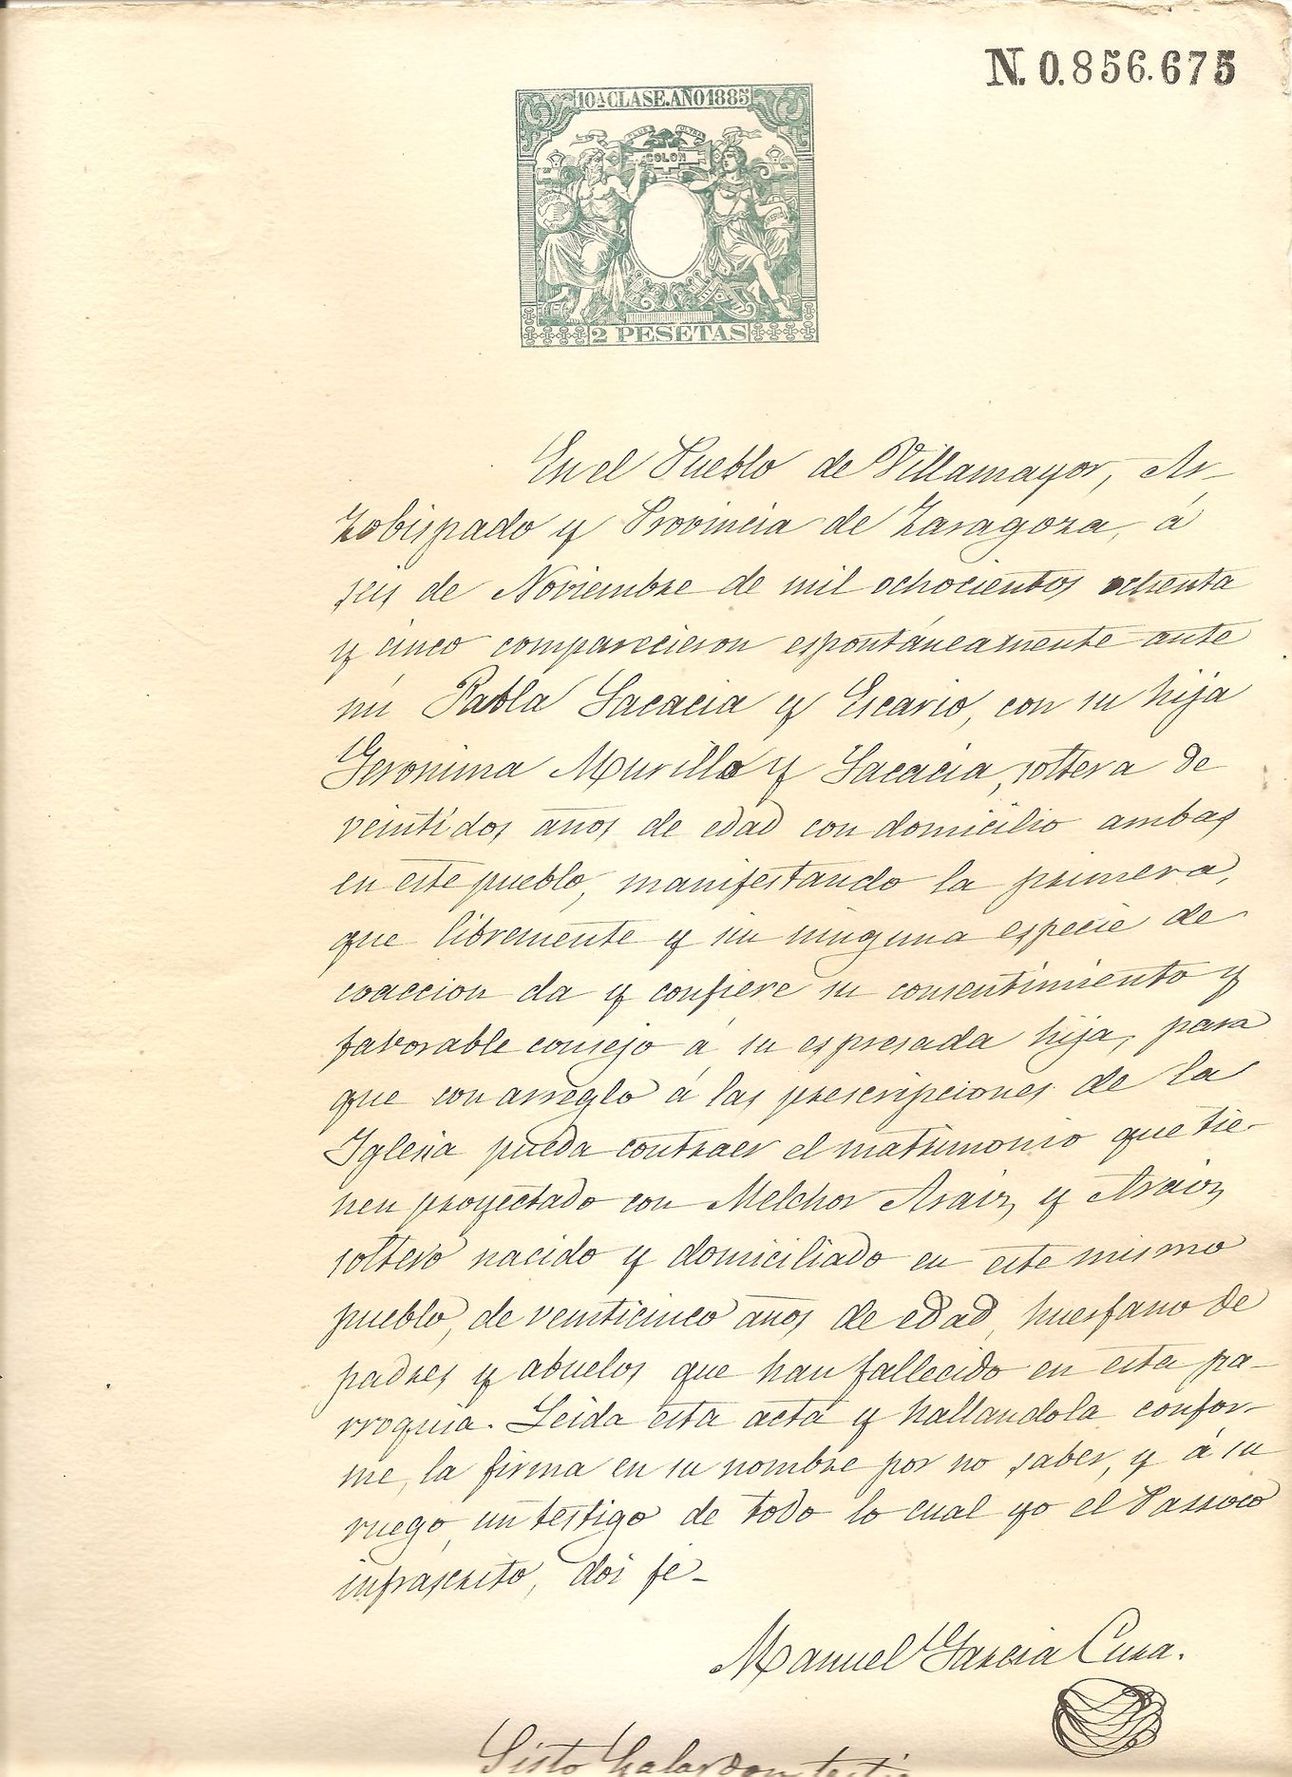 N. 0.856.675
10ª CLASE. AÑO 1885
COLON
2 PESETAS
En el Pueblo de Villamayor, Ar-
zobispado y Provincia de Zaragoza, á
seis de Noviembre de mil ochocientos ochenta
y cinco comparecieron espontáneamente ante
mi Pabla Lacacia y Escario, con su hija
Geronima Murillo y Lacacia, soltera de
veintidos años de edad con domicilio ambas
en este pueblo, manifestando la primera,
que libremente y sin ninguna especie de
coaccion da y confiere su consentimiento y
favorable consejo á su espresada hija, para
que con arreglo á las prescripciones de la
Iglesia pueda contraer el matrimonio que tie-
nen proyectado con Melchor Araiz y Araiz,
soltero nacido y domiciliado en este mismo
pueblo, de veinticinco años de edad, huerfano de
padres y abuelos que han fallecido en esta pa-
rroquia. Leida esta acta y hallandola confor-
me, la firma en su nombre por no saber, y á su
ruego, un testigo de todo lo cual yo el Parroco
infrascrito, doi fe-
Manuel Garcia Cura.
Sisto Galardon testi